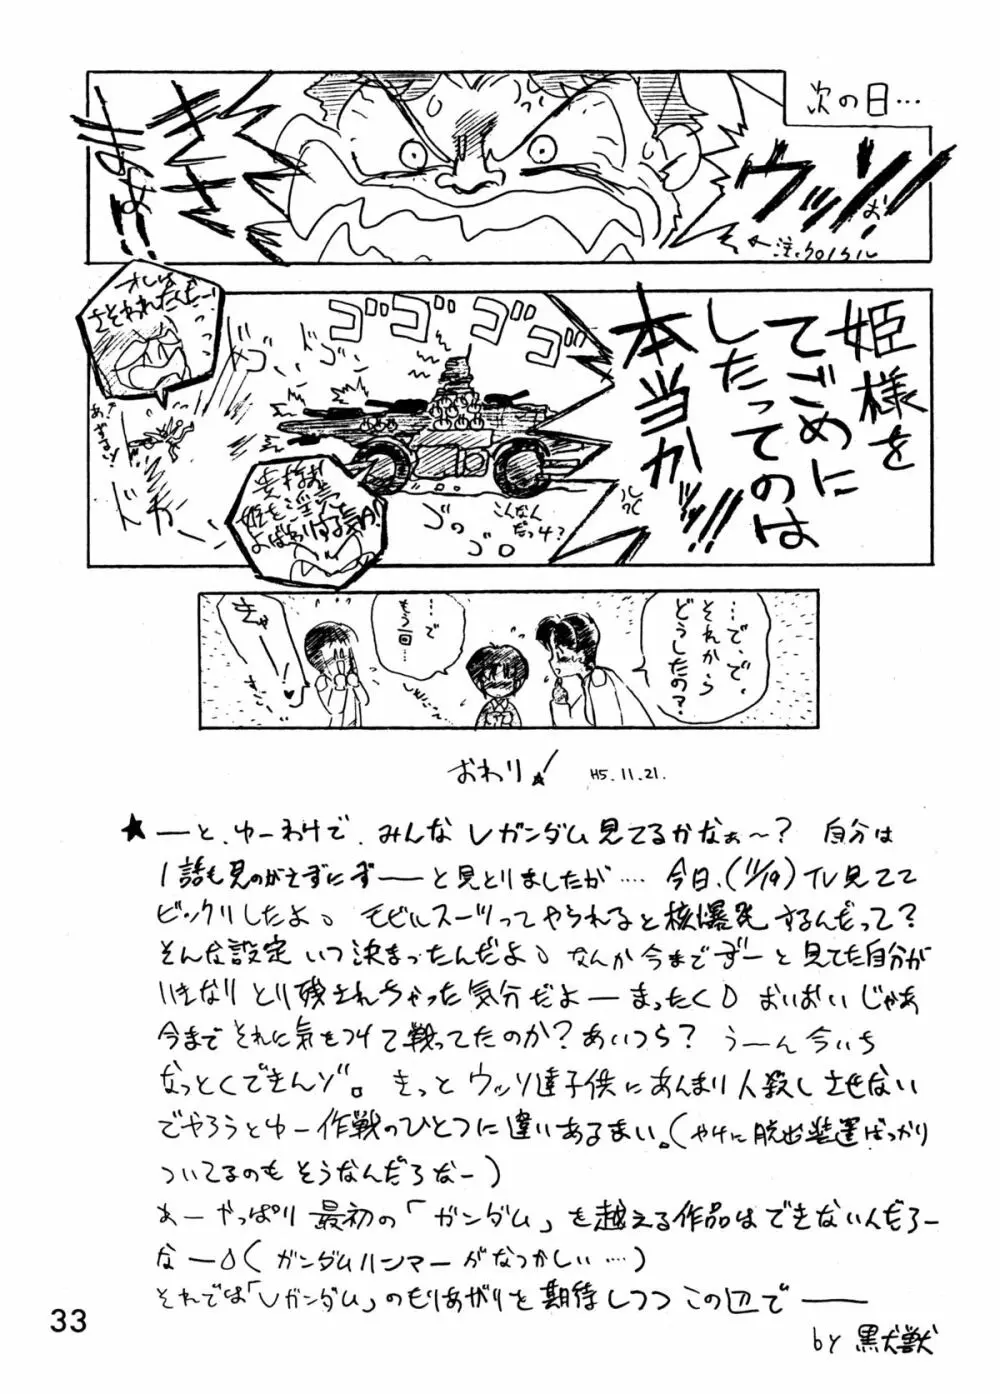 次の日…
ウッソぉ!!
きさまぁ!!
←注.クロノクル
姫様を
てごめに
したってのは
本当か!!
ゴゴゴゴ
オレは
さそわれたんだー!
ドゴ
ドカ
こんなん
だっけ?
ゴゴゴ
…で、で、
それから
どうしたの?
…で
もう一回…
きゃーー!♡
おわり! H5.11.21.
★ーと、ゆーわけで、みんなVガンダム見てるかなぁ〜? 自分は
1話も見のがさずにずーーと見とりましたが…. 今日、(11/19)TV見てて
ビックリしたよ。モビルスーツってやられると核爆発するんだって?
そんな設定いつ決まったんだよ。なんか今までずーと見てた自分が
いきなりとり残されちゃった気分だよーまったく。おいおいじゃあ
今までそれに気をつけて戦ってたのか?あいつら? うーん今いち
なっとくできんゾ。きっとウッソ達子供にあんまり人殺しさせない
でやろうとゆー作戦のひとつに違いあるまい。(やけに脱出装置ばっかり
ついてるのもそうなんだろなー)
あーやっぱり最初の「ガンダム」を越える作品はできないんだろー
なー。(ガンダムハンマーがなつかしい…)
それでは「Vガンダム」のもりあがりを期待しつつこの辺でーー
by 黒犬獣
33